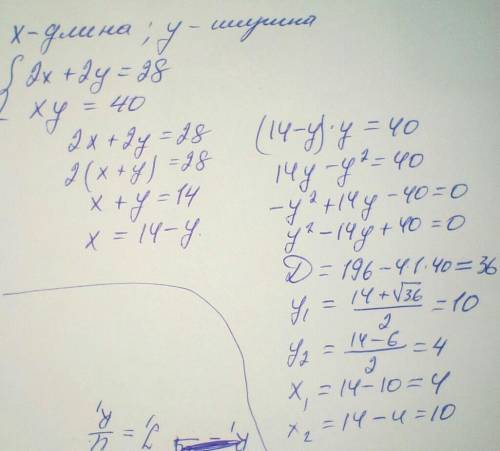 x-длина; y-ширина
2x+2y=28
xy=40
2x+2y=28
2(x+y)=28
x+y=14
x=14-y.
(14-y)·y=40
14y-y²=40
-y²+14y-40=0
y²-14y+40=0
D=196-4·1·40=36
y₁=(14+√36)/2=10
y₂=(14-6)/2=4
x₁=14-10=4
x₂=14-4=10